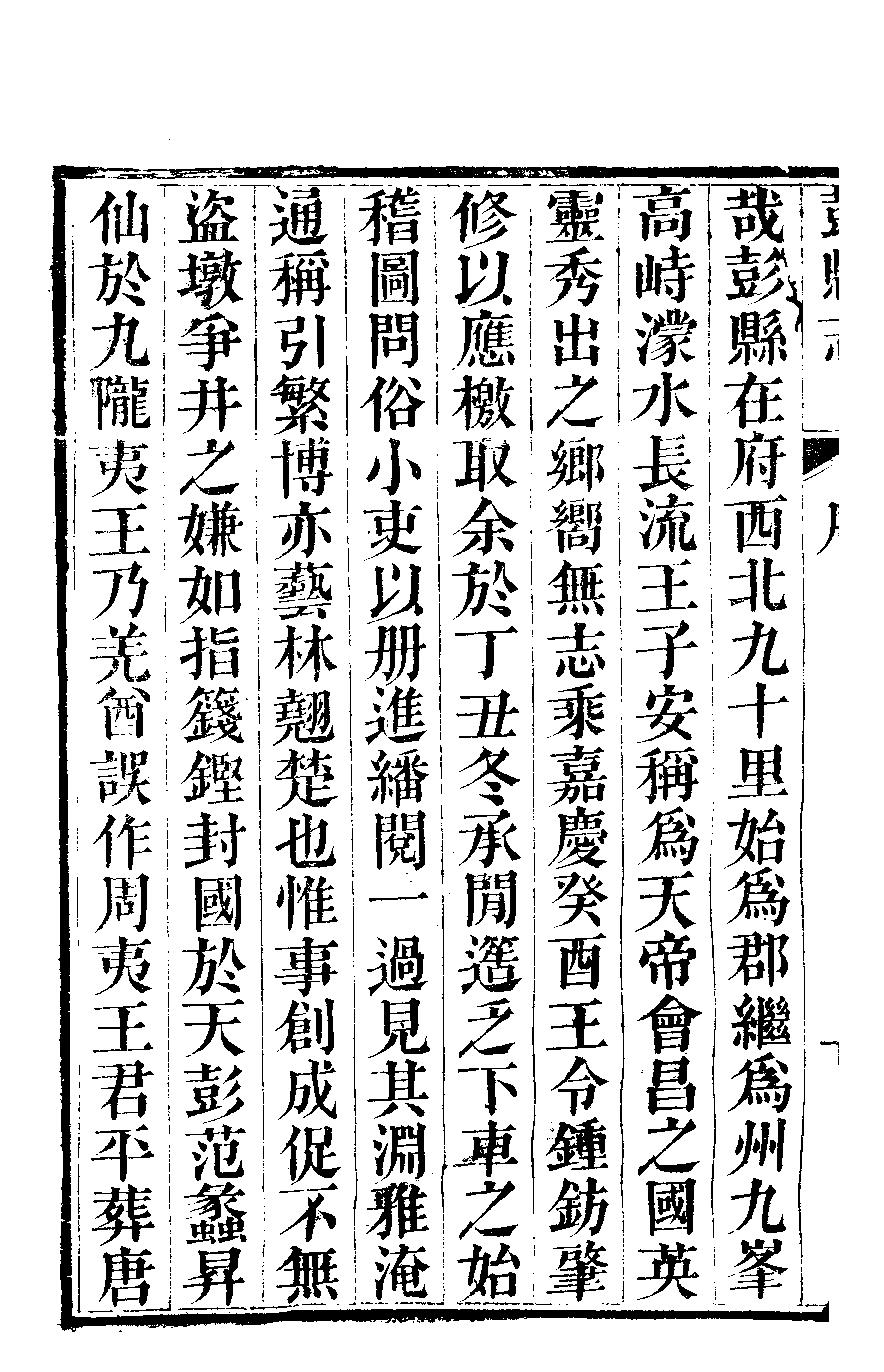 彭縣志
序
哉彭縣在府西北九十里始爲郡繼爲州九峯
高峙濛水長流王子安稱爲天帝會昌之國英
靈秀出之鄉嚮無志乘嘉慶癸酉王令鍾鈁肇
修以應檄取余於丁丑冬承閒簉之下車之始
稽圖問俗小吏以册進繙閱一過見其淵雅淹
通稱引繁博亦藝林翹楚也惟事創成促不無
盜墩爭井之嫌如指籛鏗封國於天彭范蠡昇
仙於九隴夷王乃羌酋誤作周夷王君平葬唐